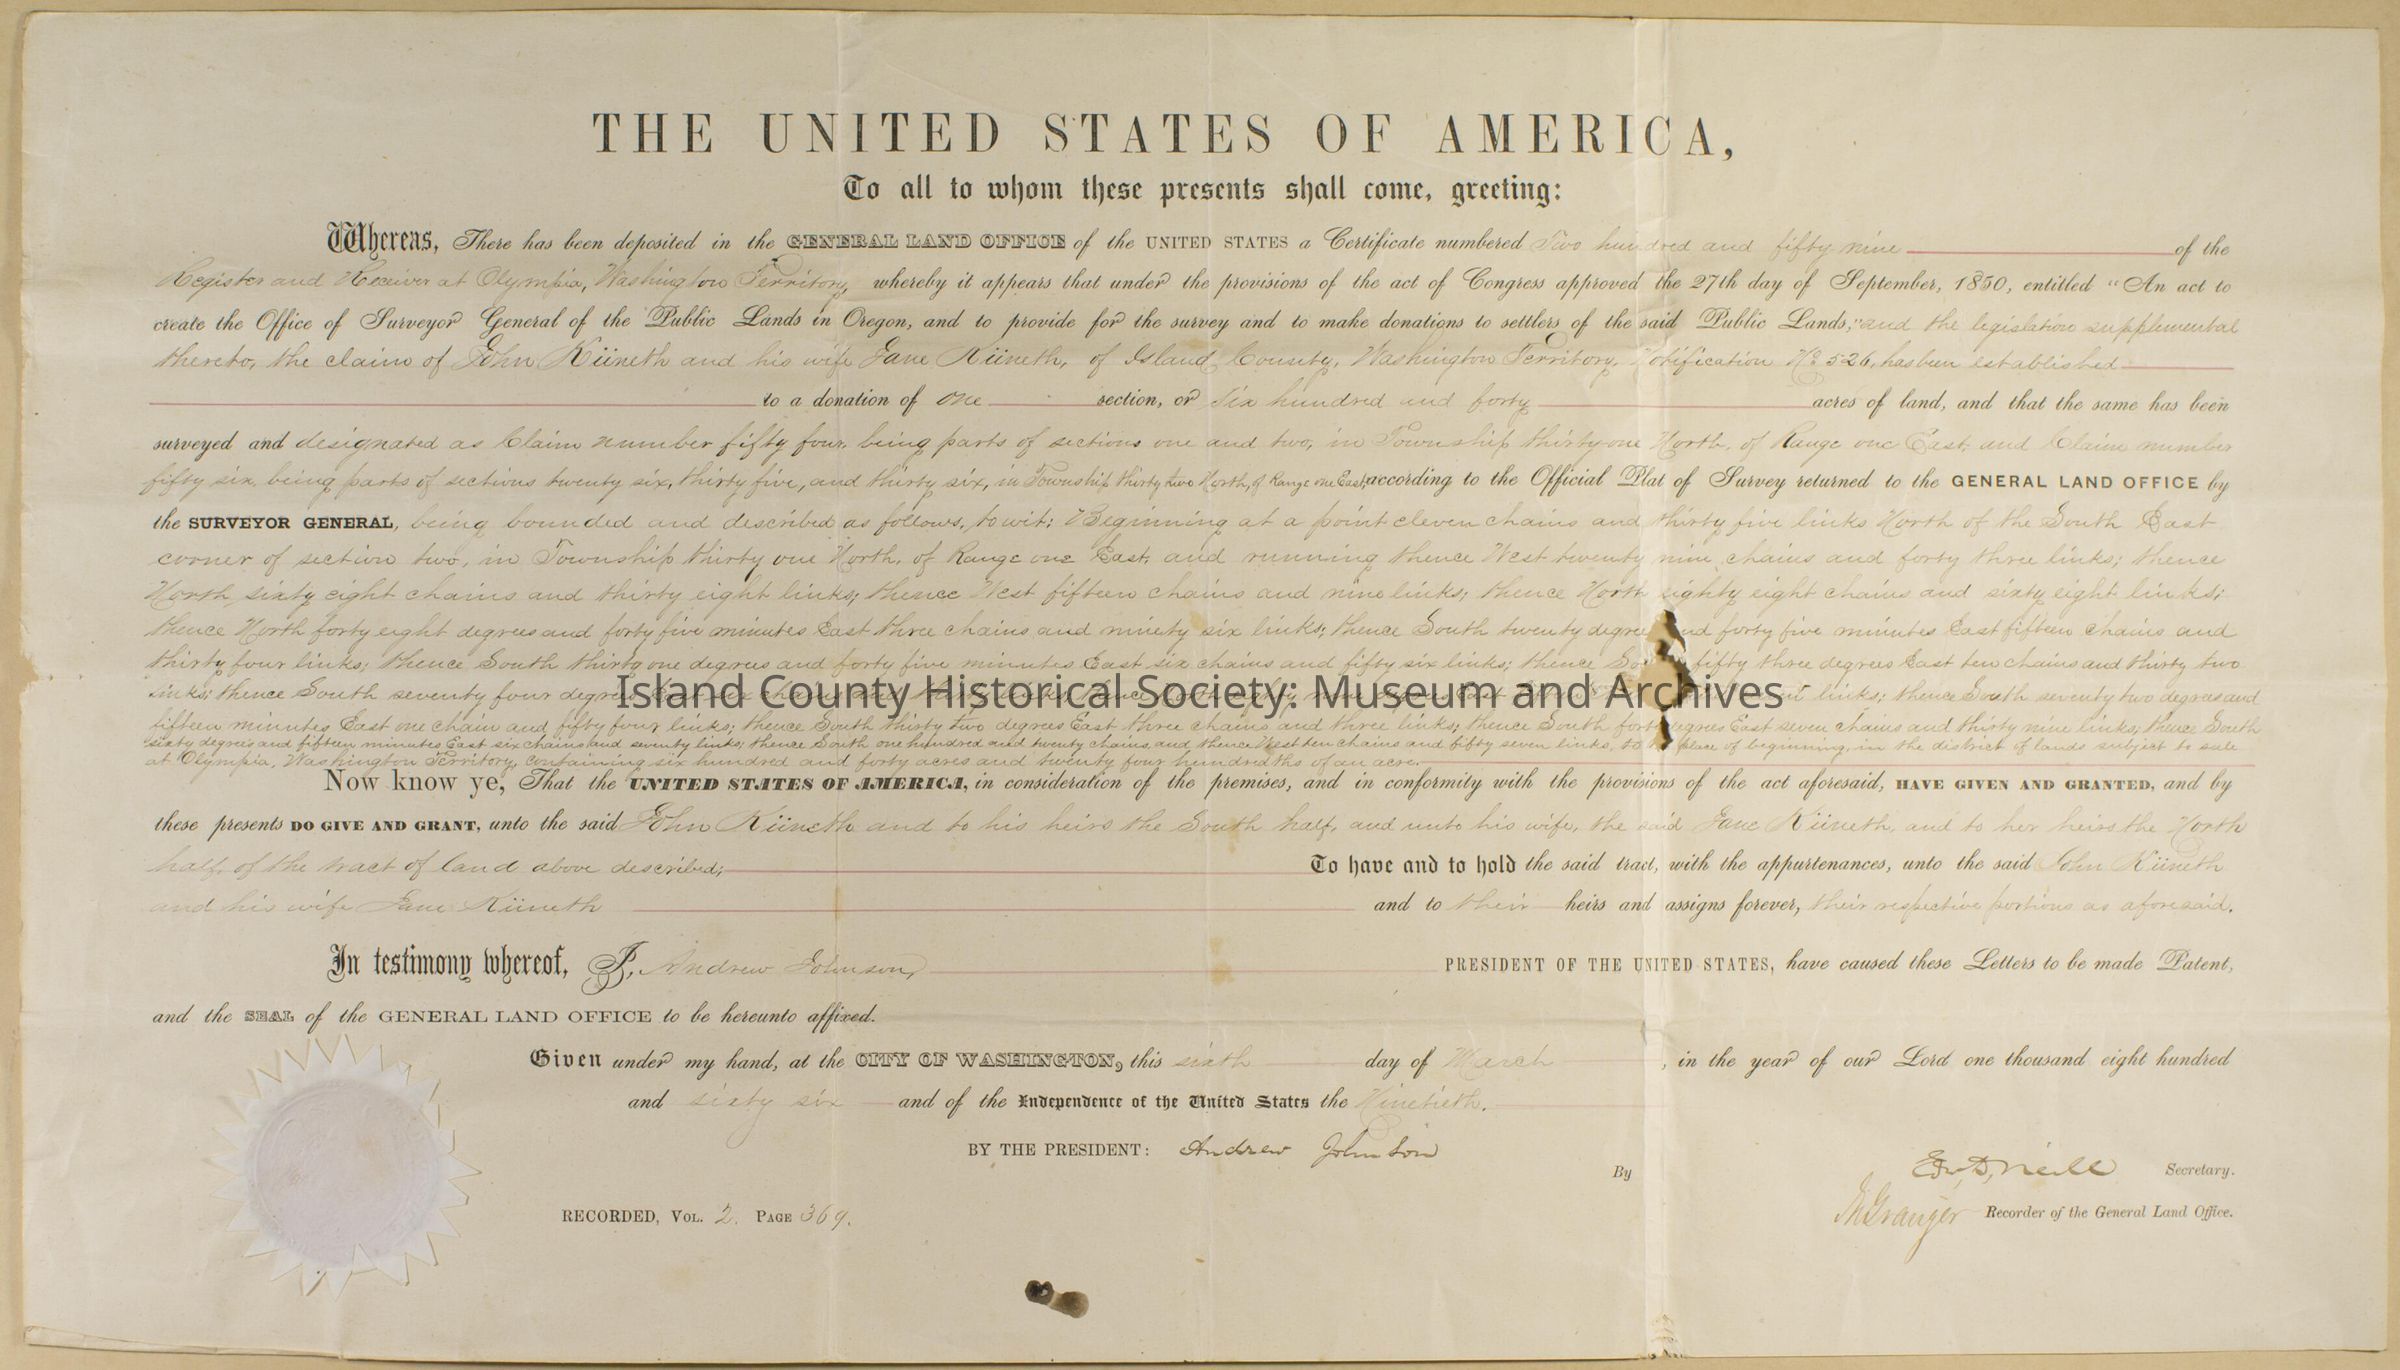 THE UNITED STATES OF AMERICA,
To all to whom these presents shall come, greeting:
Whereas, There has been deposited in the GENERAL LAND OFFICE of the UNITED STATES a Certificate numbered Two hundred and fifty nine of the
Register and Receiver at Olympia, Washington Territory, whereby it appears that under the provisions of the act of Congress approved the 27th day of September, 1850, entitled "An act to
create the Office of Surveyor General of the Public Lands in Oregon, and to provide for the survey and to make donations to settlers of the said Public Lands," and the legislation supplemental
thereto, the claim of John Küneth and his wife Jane Küneth, of Island County, Washington Territory, Notification No 526, has been established
to a donation of one section, or six hundred and forty acres of land, and that the same has been
surveyed and designated as Claim number fifty four, being parts of sections one and two, in Township thirty one North, of Range one East, and Claim number
fifty six, being parts of sections twenty six, thirty five, and thirty six, in Township thirty two North, of Range one East, according to the Official Plat of Survey returned to the GENERAL LAND OFFICE by
the SURVEYOR GENERAL, being bounded and described as follows, to wit: Beginning at a point eleven chains and thirty five links North of the South East
corner of section two, in Township thirty one North, of Range one East, and running thence West twenty nine chains and forty three links; thence
North sixty eight chains and thirty eight links; thence West fifteen chains and nine links; thence North eighty eight chains and sixty eight links;
thence North forty eight degrees and forty five minutes East three chains and ninety six links; thence South twenty degrees and forty five minutes East fifteen chains and
thirty four links; thence South thirty one degrees and forty five minutes East six chains and fifty six links; thence South fifty three degrees East ten chains and thirty two
links; thence South seventy four degrees East six chains and links; thence links; thence South seventy two degrees and
Island County Historical Society: Museum and Archives
fifteen minutes East one chain and fifty four links; thence South thirty two degrees East three chains and three links; thence South forty degrees East seven chains and thirty nine links; thence South
sixty degrees and fifteen minutes East six chains and seventy links; thence South one hundred and twenty chains, and thence West ten chains and fifty seven links, to the place of beginning, in the district of lands subject to sale
at Olympia, Washington Territory, containing six hundred and forty acres and twenty four hundredths of an acre.
Now know ye, That the UNITED STATES OF AMERICA, in consideration of the premises, and in conformity with the provisions of the act aforesaid, HAVE GIVEN AND GRANTED, and by
these presents DO GIVE AND GRANT, unto the said John Küneth and to his heirs the South half, and unto his wife, the said Jane Küneth, and to her heirs the North
half, of the tract of land above described; To have and to hold the said tract, with the appurtenances, unto the said John Küneth
and his wife Jane Küneth and to their heirs and assigns forever, their respective portions as aforesaid.
In testimony whereof, I, Andrew Johnson, PRESIDENT OF THE UNITED STATES, have caused these Letters to be made Patent,
and the SEAL of the GENERAL LAND OFFICE to be hereunto affixed.
Given under my hand, at the CITY OF WASHINGTON, this sixth day of March, in the year of our Lord one thousand eight hundred
and sixty six and of the Independence of the United States the Ninetieth.
BY THE PRESIDENT: Andrew Johnson
By Edw. D. Neill Secretary.
RECORDED, VOL. 2. PAGE 369. Granger Recorder of the General Land Office.